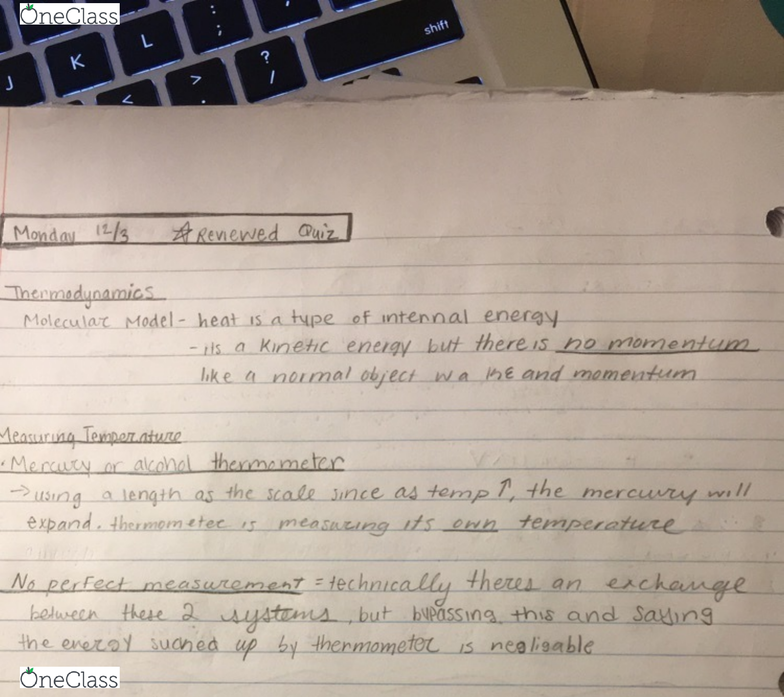 OneClass
shift
J
K
L
:
;
<
>
.
?
/
Monday 12/3 ☆ Reviewed Quiz
Thermodynamics
Molecular Model - heat is a type of internal energy
- its a kinetic energy but there is no momentum
like a normal object w a KE and momentum
Measuring Temperature
• Mercury or alcohol thermometer
→ using a length as the scale since as temp ↑, the mercury will
expand. thermometer is measuring its own temperature
No perfect measurement = technically theres an exchange
between these 2 systems, but bypassing this and saying
the energy sucked up by thermometer is negligable
OneClass